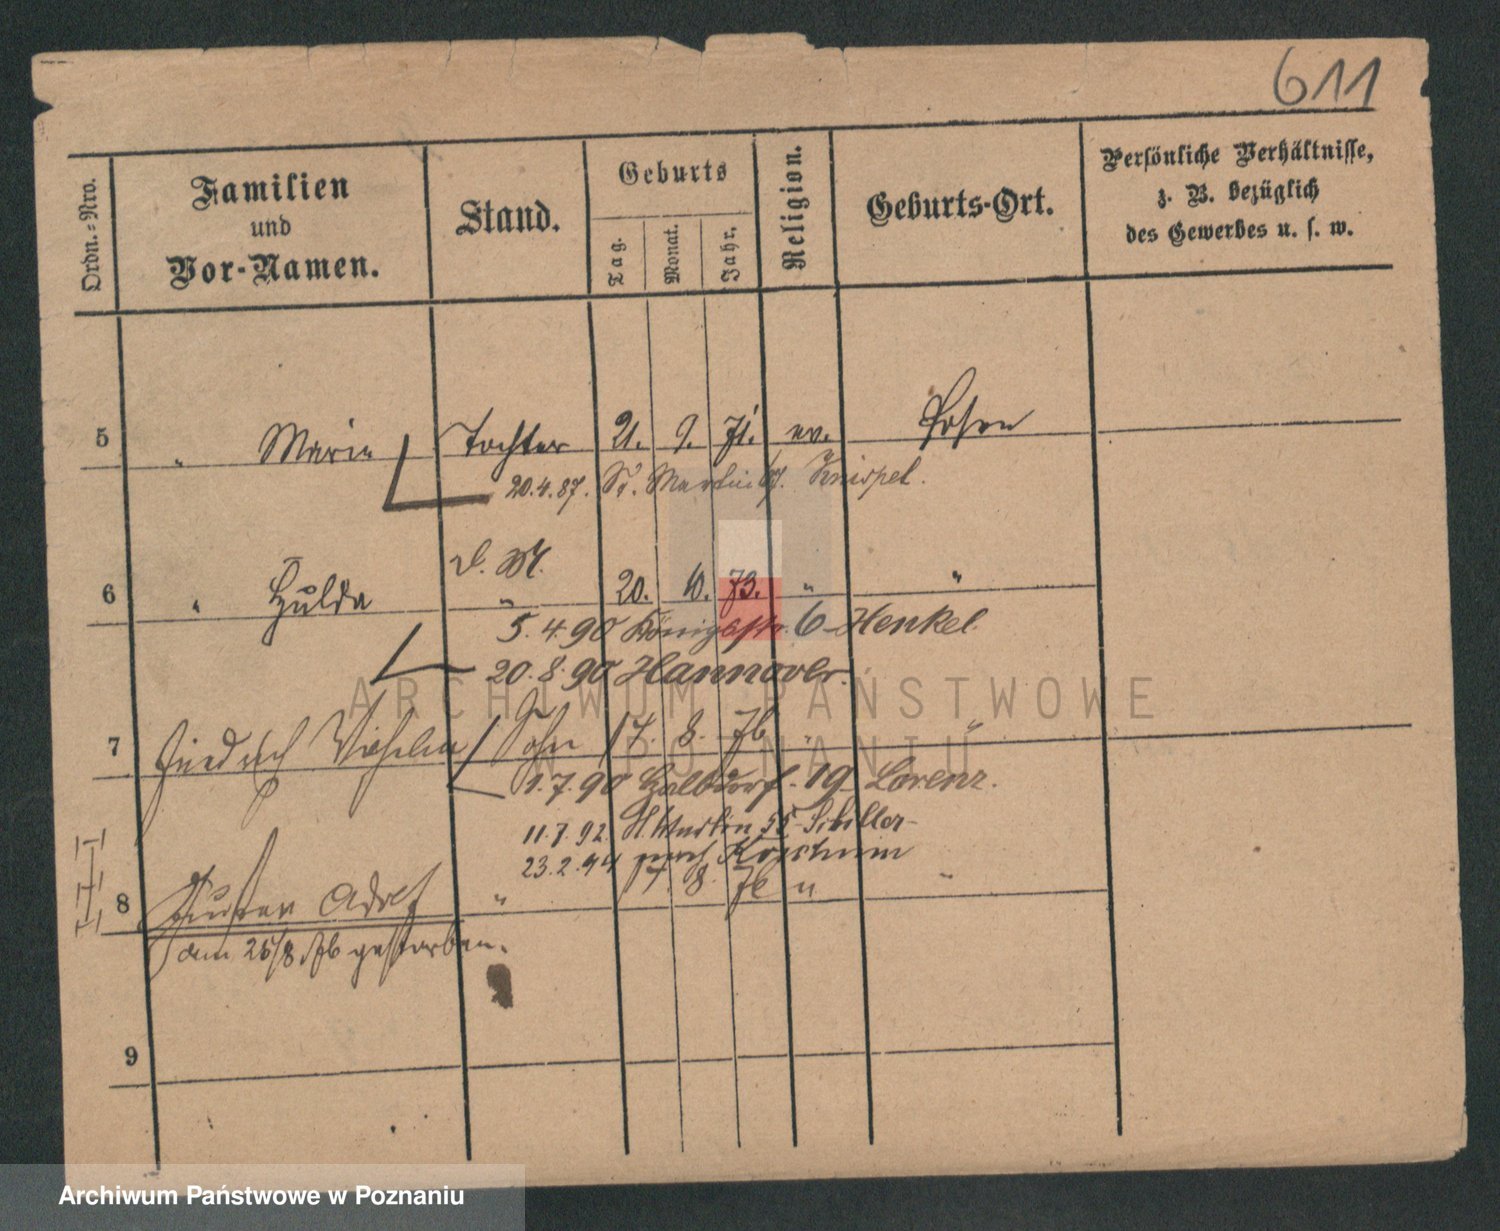 611
Ordn.-Nro.
Familien
und
Vor-Namen.
Stand.
Geburts
Tag.
Monat.
Jahr.
Religion.
Geburts-Ort.
Persönliche Verhältnisse,
z. B. bezüglich
des Gewerbes u. s. w.
5 " Marie Tochter 21. 9. 71. ev. Posen
20.4.87. St. Martin 67. Knispel.
d. M.
6 " Hulda " 20. 10. 73. " "
5.4.90 Königsstr. 6 Henkel
20.8.90 Hannover.
7 Friedrich Wilhelm Sohn 17. 8. 76 " "
1.7.90 Halbdorf. 19 Lorenz.
11.7.92. St. Martin 55 Schiller
23.2.94 nach
8 Gustav Adolf " 17 8. 76 " "
am 25/8 76 gestorben.
9
ARCHIWUM PAŃSTWOWE
W POZNANIU
Archiwum Państwowe w Poznaniu